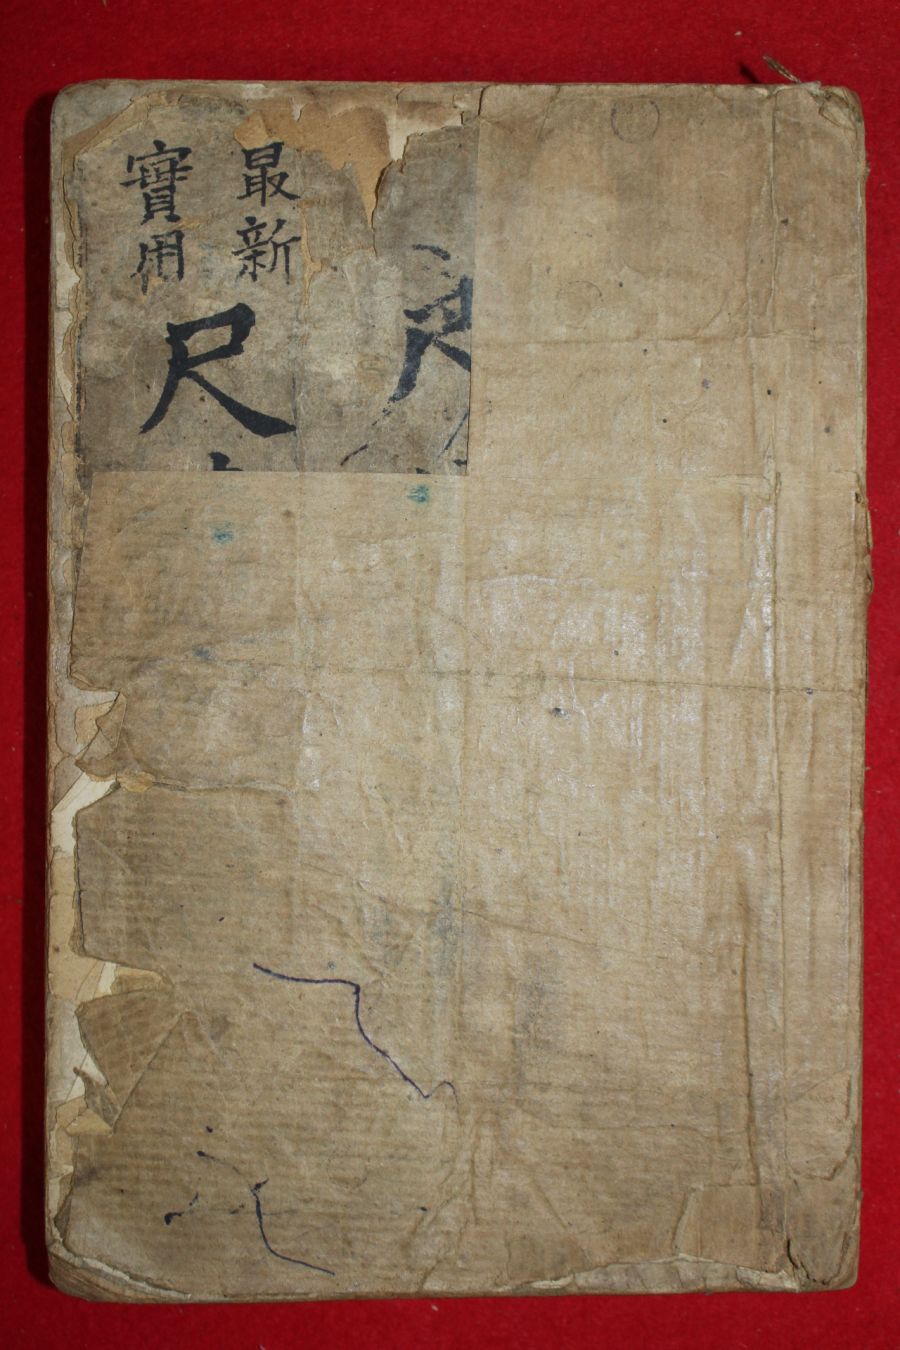 最新
實用
尺